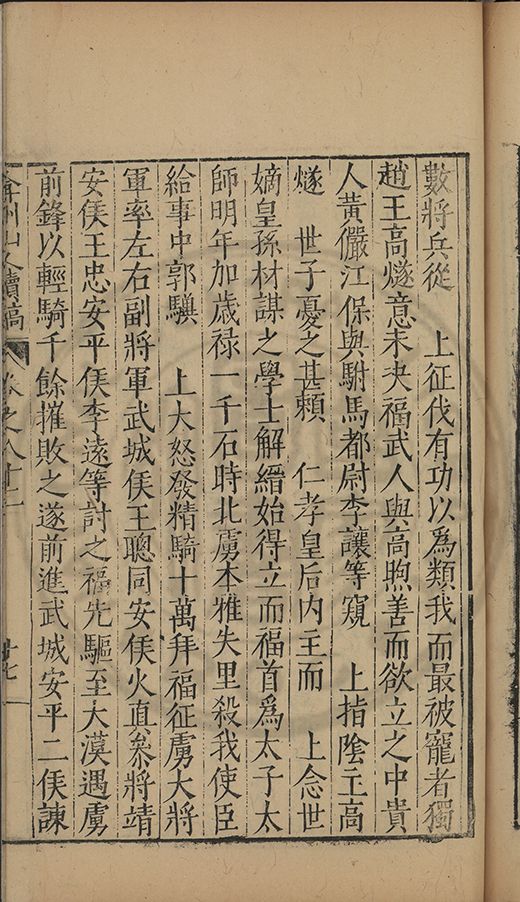 數將兵從　上征伐有功以爲類我而最被寵者獨
趙王高燧意未决福武人與高煦善而欲立之中貴
人黃儼江保與駙馬都尉李讓等窺　上指陰主高
燧　世子憂之甚賴　仁孝皇后内主而　上念世
嫡皇孫材謀之學士解縉始得立而福首爲太子太
師明年加歲祿一千石時北虜本雅失里殺我使臣
給事中郭驥　上大怒發精騎十萬拜福征虜大將
軍率左右副將軍武城侯王聰同安侯火直叅將靖
安侯王忠安平侯李遠等討之福先驅至大漠遇虜
前鋒以輕騎千餘摧敗之遂前進武城安平二侯諫
弇州山人續稿　卷之八十二　廿七